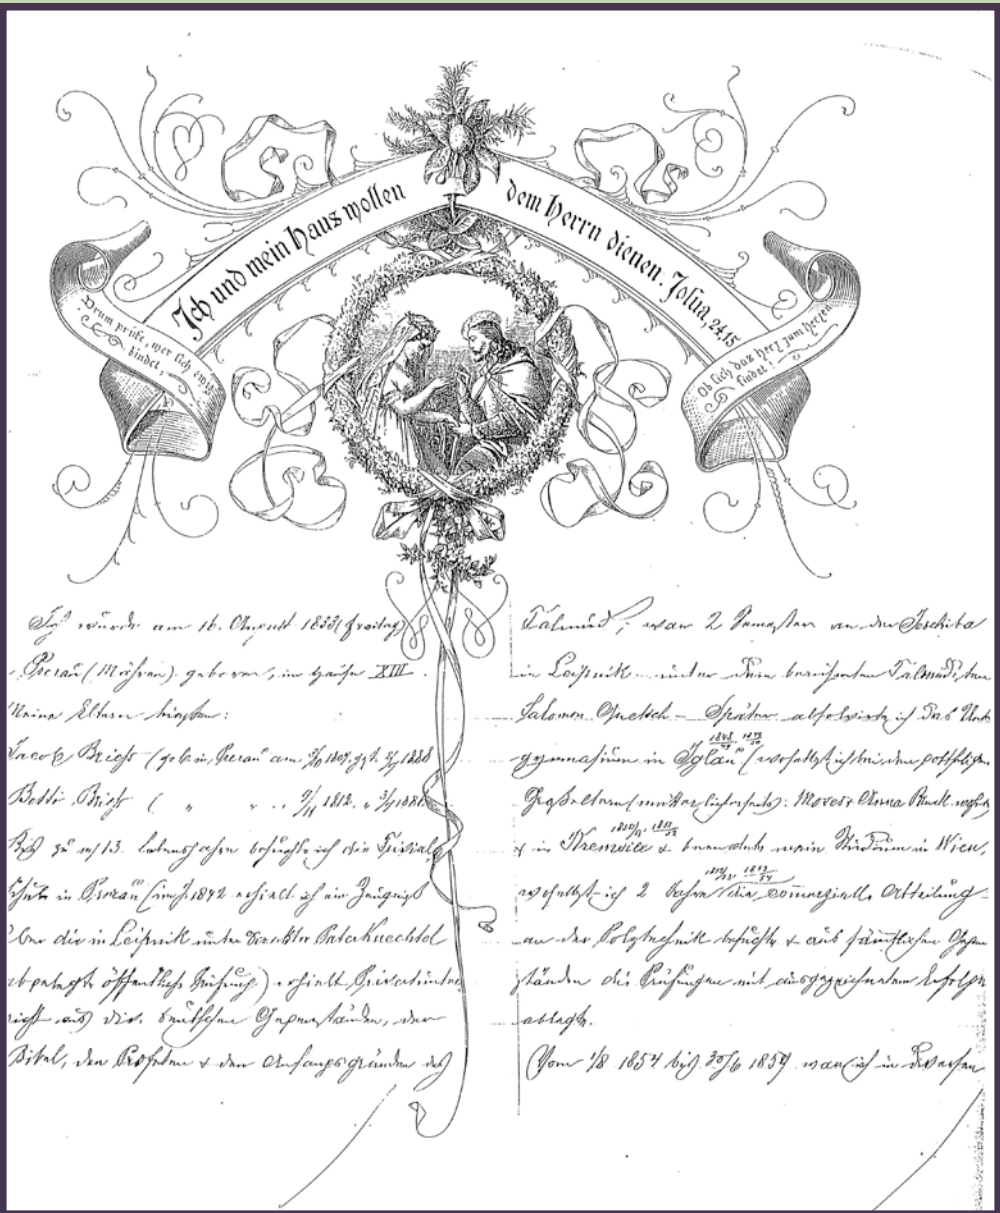 Ich und mein Haus wollen dem Herrn dienen. Josua, 24,15
Drum prüfe, wer sich ewig
bindet,
Ob sich das Herz zum Herzen
findet!
Ich wurde am 16. August 1833 (Freitag)
Prerau (Mähren) geboren, im Hause XIII.
Meine Eltern hießen:
Jacob Briess (geb. in Prerau am 1807, gst. 1888
Betti Briess ( " " " 1812, " 1886
Bis zu m/13. Lebensjahre besuchte ich die Trivial
schule in Prerau (im J. 1842 erhielt ich ein Zeugniß
über die in Leipnik unter Direktor Pater Knechtel
abgelegte öffentliche Prüfung) erhielt Privatunter
richt aus div. deutschen Gegenständen, der
Bibel, den Profeten & den Anfangsgründen des
Talmud, war 2 Semester an der Jeschiba
in Leipnik unter dem berühmten Talmudisten
Salomon Quetsch – Später absolvirte ich das Unter
gymnasium in Iglau (woselbst ich bei den
Großeltern (mütterlicherseits): Moses & Anna
& in Kremsier & beendete mein Studium in Wien,
woselbst ich 2 Jahre die commerzielle Abteilung
an der Polytechnik besuchte & aus sämtlichen Gegen
ständen die Prüfungen mit ausgezeichnetem Erfolge
ablegte.
Vom 1/8 1854 bis 30/6 1859 war ich in diversen